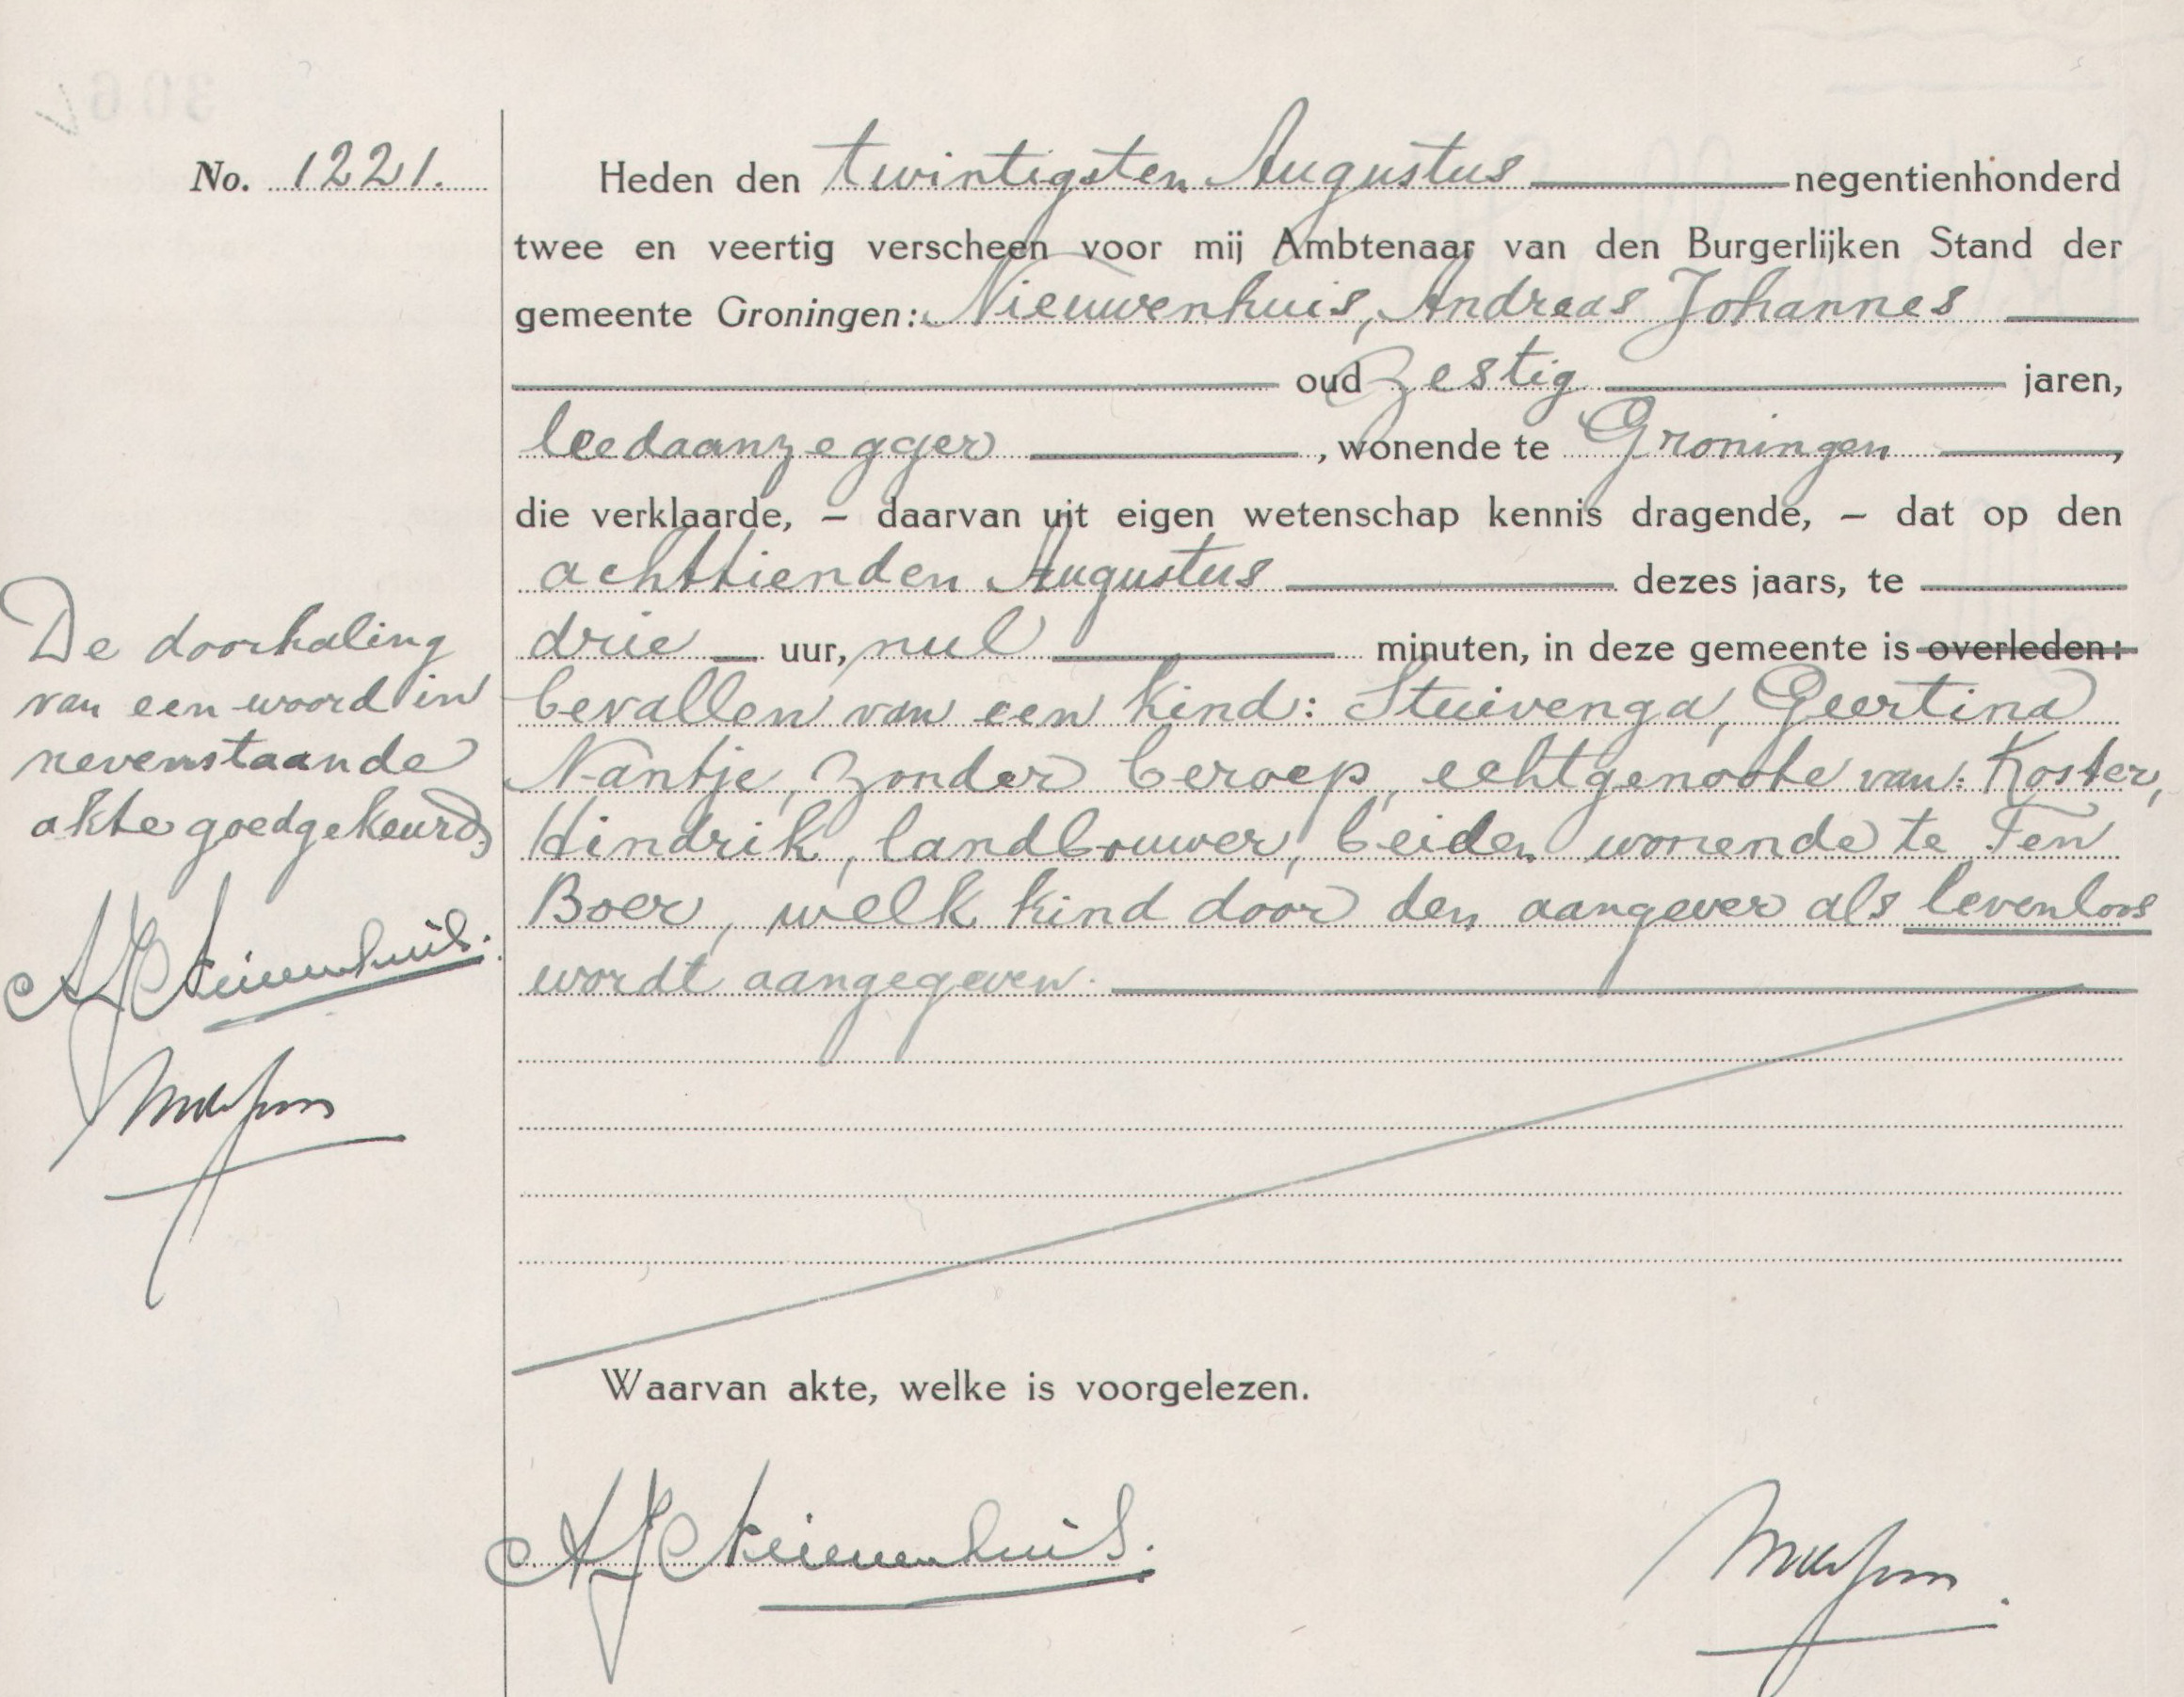 No. 1221.
Heden den twintigsten Augustus negentienhonderd
twee en veertig verscheen voor mij Ambtenaar van den Burgerlijken Stand der
gemeente Groningen: Nieuwenhuis, Andreas Johannes
oud zestig jaren,
leedaanzegger, wonende te Groningen,
die verklaarde, – daarvan uit eigen wetenschap kennis dragende, – dat op den
achttienden Augustus dezes jaars, te
drie uur, nul minuten, in deze gemeente is overleden:
bevallen van een kind: Stuivenga, Geertina
Nantje, zonder beroep, echtgenoote van: Koster,
Hindrik, landbouwer, beiden wonende te Ten
Boer, welk kind door den aangever als levenloos
wordt aangegeven.
De doorhaling
van een woord in
nevenstaande
akte goedgekeurd.
AJ Nieuwenhuis.
Waarvan akte, welke is voorgelezen.
AJ Nieuwenhuis.